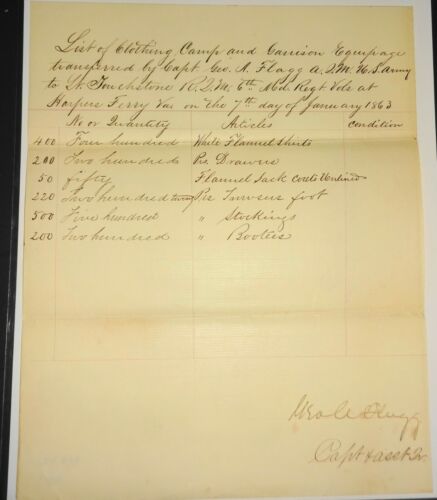 List of Clothing Camp and Garrison Equipage
transferred by Capt Geo. A. Flagg A.Q.M. U.S. Army
to Lt. Touchstone R.Q.M. 6th Md. Regt Vols at
Harpers Ferry Va on the 7th day of January 1863
No or Quantity Articles Condition
400 Four hundred White Flannel Shirts
200 Two hundred Prs Drawers
50 fifty Flannel Sack Coats Unlined
220 Two hundred twenty Prs Trowsers foot
500 Five hundred " Stockings
200 Two hundred " Bootees
Geo A Flagg
Capt & asst Qr